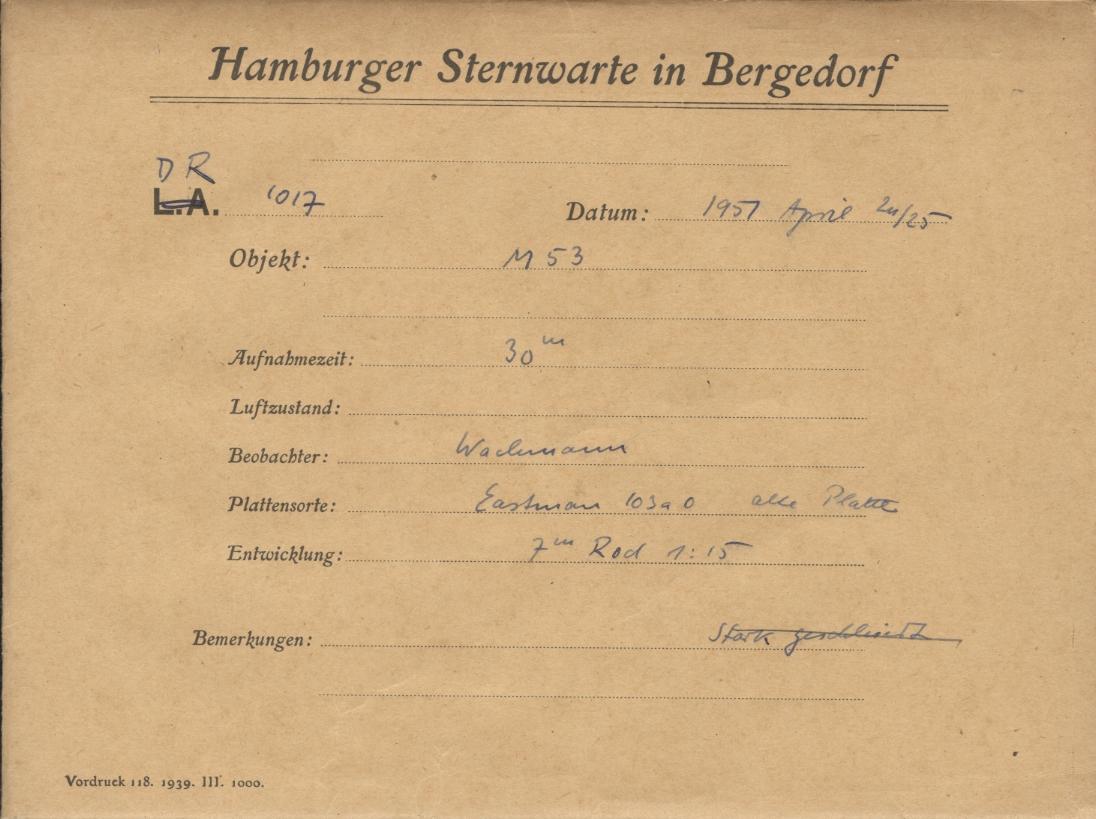 Hamburger Sternwarte in Bergedorf
DR
L.A. 1017 Datum: 1957 April 24/25
Objekt: M 53
Aufnahmezeit: 30m
Luftzustand:
Beobachter: Wachmann
Plattensorte: Eastman 103a0 alte Platte
Entwicklung: 7m Rod 1:15
Bemerkungen: Stark
Vordruck 118. 1939. III. 1000.